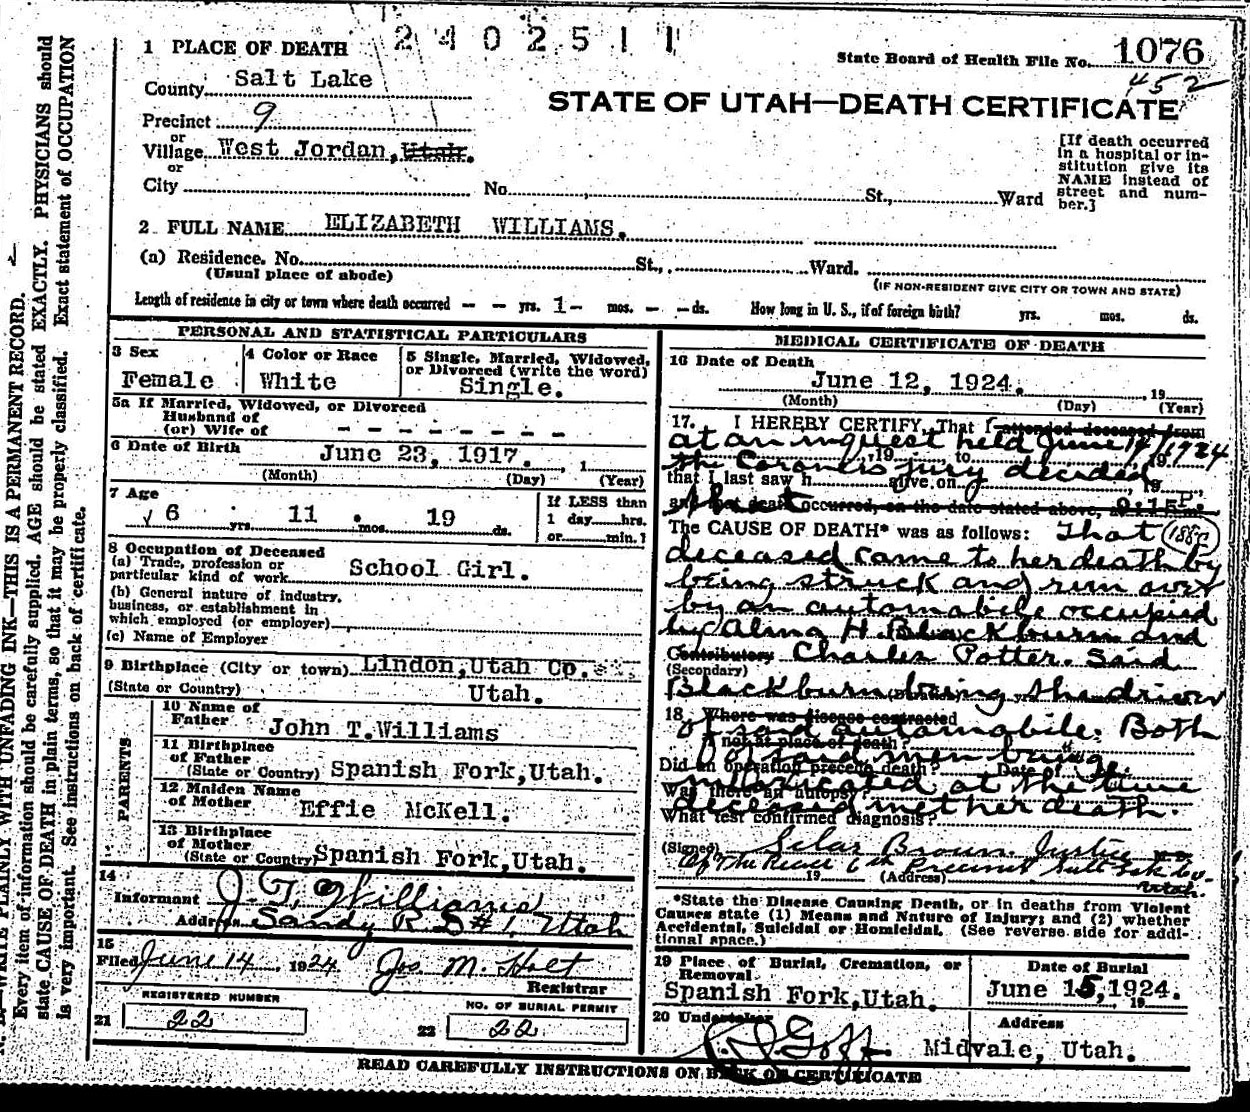 2402511
1 PLACE OF DEATH
State Board of Health File No. 1076
452
County Salt Lake
STATE OF UTAH—DEATH CERTIFICATE
Precinct 9
or
Village West Jordan, Utah.
or
City No. St., Ward
[If death occurred
in a hospital or in-
stitution give its
NAME instead of
street and num-
ber.]
2 FULL NAME ELIZABETH WILLIAMS.
(a) Residence. No. St., Ward.
(Usual place of abode)
(IF NON-RESIDENT GIVE CITY OR TOWN AND STATE)
Length of residence in city or town where death occurred - - yrs. 1- mos. - - ds. How long in U. S., if of foreign birth? yrs. mos. ds.
PERSONAL AND STATISTICAL PARTICULARS
3 Sex
Female
4 Color or Race
White
5 Single, Married, Widowed,
or Divorced (write the word)
Single.
5a If Married, Widowed, or Divorced
Husband of
(or) Wife of - - - - - - - -
6 Date of Birth June 23, 1917. , 1
(Month) (Day) (Year)
7 Age
6 yrs. 11 mos. 19 ds.
If LESS than
1 day hrs.
or min.?
8 Occupation of Deceased
(a) Trade, profession or
particular kind of work School Girl.
(b) General nature of industry,
business, or establishment in
which employed (or employer)
(c) Name of Employer
9 Birthplace (City or town) Lindon, Utah Co.
(State or Country) Utah.
PARENTS
10 Name of
Father John T. Williams
11 Birthplace
of Father
(State or Country) Spanish Fork, Utah.
12 Maiden Name
of Mother Effie McKell.
13 Birthplace
of Mother
(State or Country) Spanish Fork, Utah.
14
Informant J. T. Williams
Address Sandy R. D #1, Utah
15
Filed June 14, 1924 Jos. M. Holt
Registrar
REGISTERED NUMBER
21 22
NO. OF BURIAL PERMIT
22 22
MEDICAL CERTIFICATE OF DEATH
16 Date of Death
June 12, 1924. , 19
(Month) (Day) (Year)
17. I HEREBY CERTIFY, That I attended deceased from
at an inquest held June 14/1924
, 19 to 19
the Coroner's jury decided
that I last saw h alive on , 19
and that death occurred, on the date stated above, at 9:15 P. m.
The CAUSE OF DEATH* was as follows: That 188c
deceased came to her death by
being struck and run over
by an automobile occupied
by Alma H. Blackburn and
Contributory Charles Potter. Said
(Secondary)
Blackburn being the driver
18 Where was disease contracted
of said automobile. Both
if not at place of death?
of said men being
Did an operation precede death? Date of
intoxicated at the time
Was there an autopsy?
deceased met her death.
What test confirmed diagnosis?
(Signed) Silas Brown. Justice
of The Peace 6th Precinct Salt Lake Co.
19 (Address) Utah.
*State the Disease Causing Death, or in deaths from Violent
Causes state (1) Means and Nature of Injury; and (2) whether
Accidental, Suicidal or Homicidal. (See reverse side for addi-
tional space.)
19 Place of Burial, Cremation, or
Removal
Spanish Fork, Utah.
Date of Burial
June 15, 1924. 19
20 Undertaker
Goff
Address
Midvale, Utah.
READ CAREFULLY INSTRUCTIONS ON BACK OF CERTIFICATE
WRITE PLAINLY WITH UNFADING INK—THIS IS A PERMANENT RECORD.
Every item of information should be carefully supplied. AGE should be stated EXACTLY. PHYSICIANS should
state CAUSE OF DEATH in plain terms, so that it may be properly classified. Exact statement of OCCUPATION
is very important. See instructions on back of certificate.